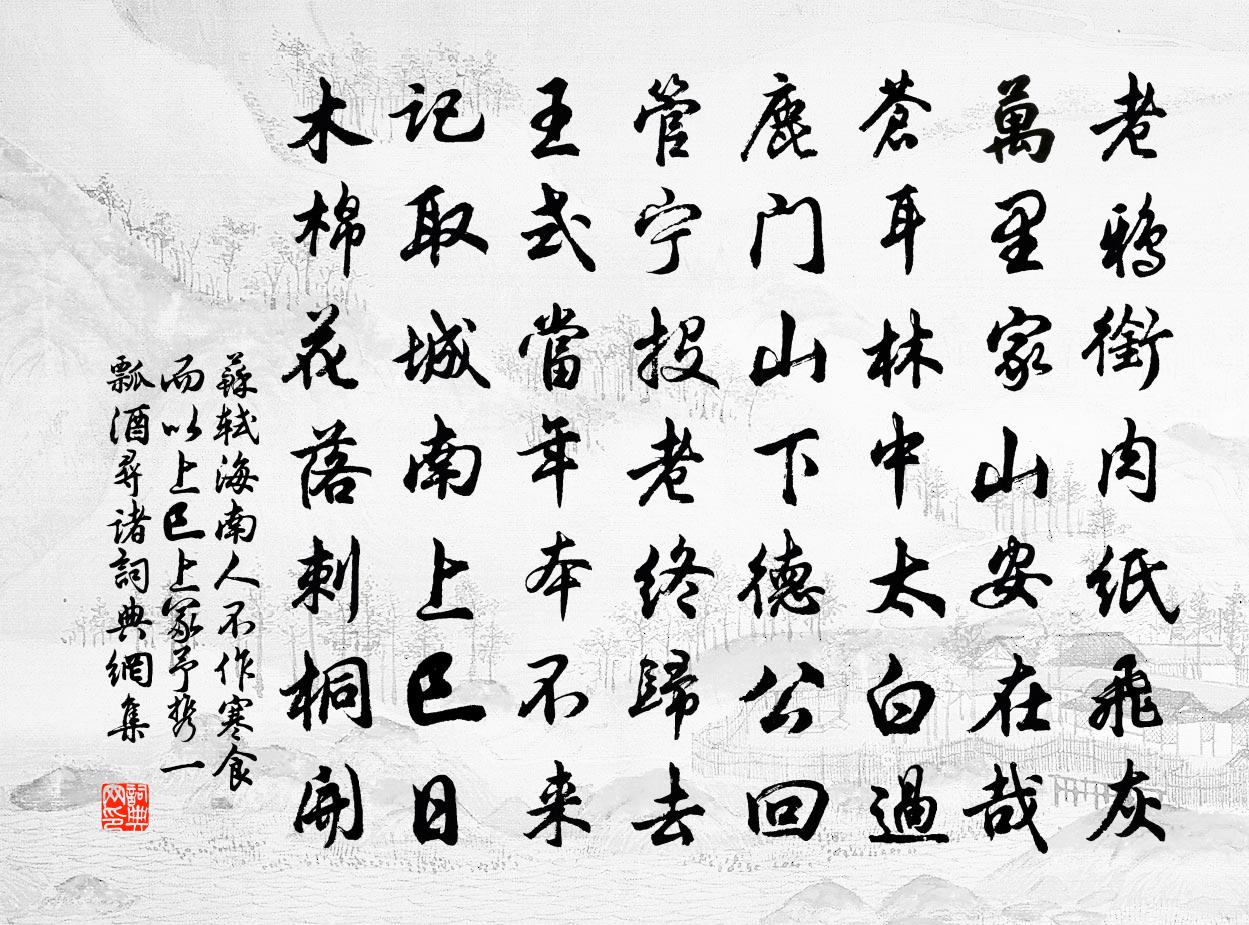 老鴉銜肉紙飛灰
萬里家山安在哉
蒼耳林中太白過
鹿门山下德公回
管宁投老終歸去
王式當年本不来
记取城南上巳日
木棉花落刺桐開
蘇轼海南人不作寒食
而以上巳上冢予攜一
瓢酒尋诸詞典網集
詞典网印